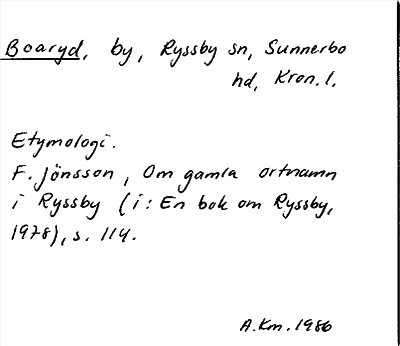 Boaryd, by, Ryssby sn, Sunnerbo
hd, Kron. l.
Etymologi.
F. Jönsson, Om gamla ortnamn
i Ryssby (i: En bok om Ryssby,
1978), s. 114.
A.Km. 1986